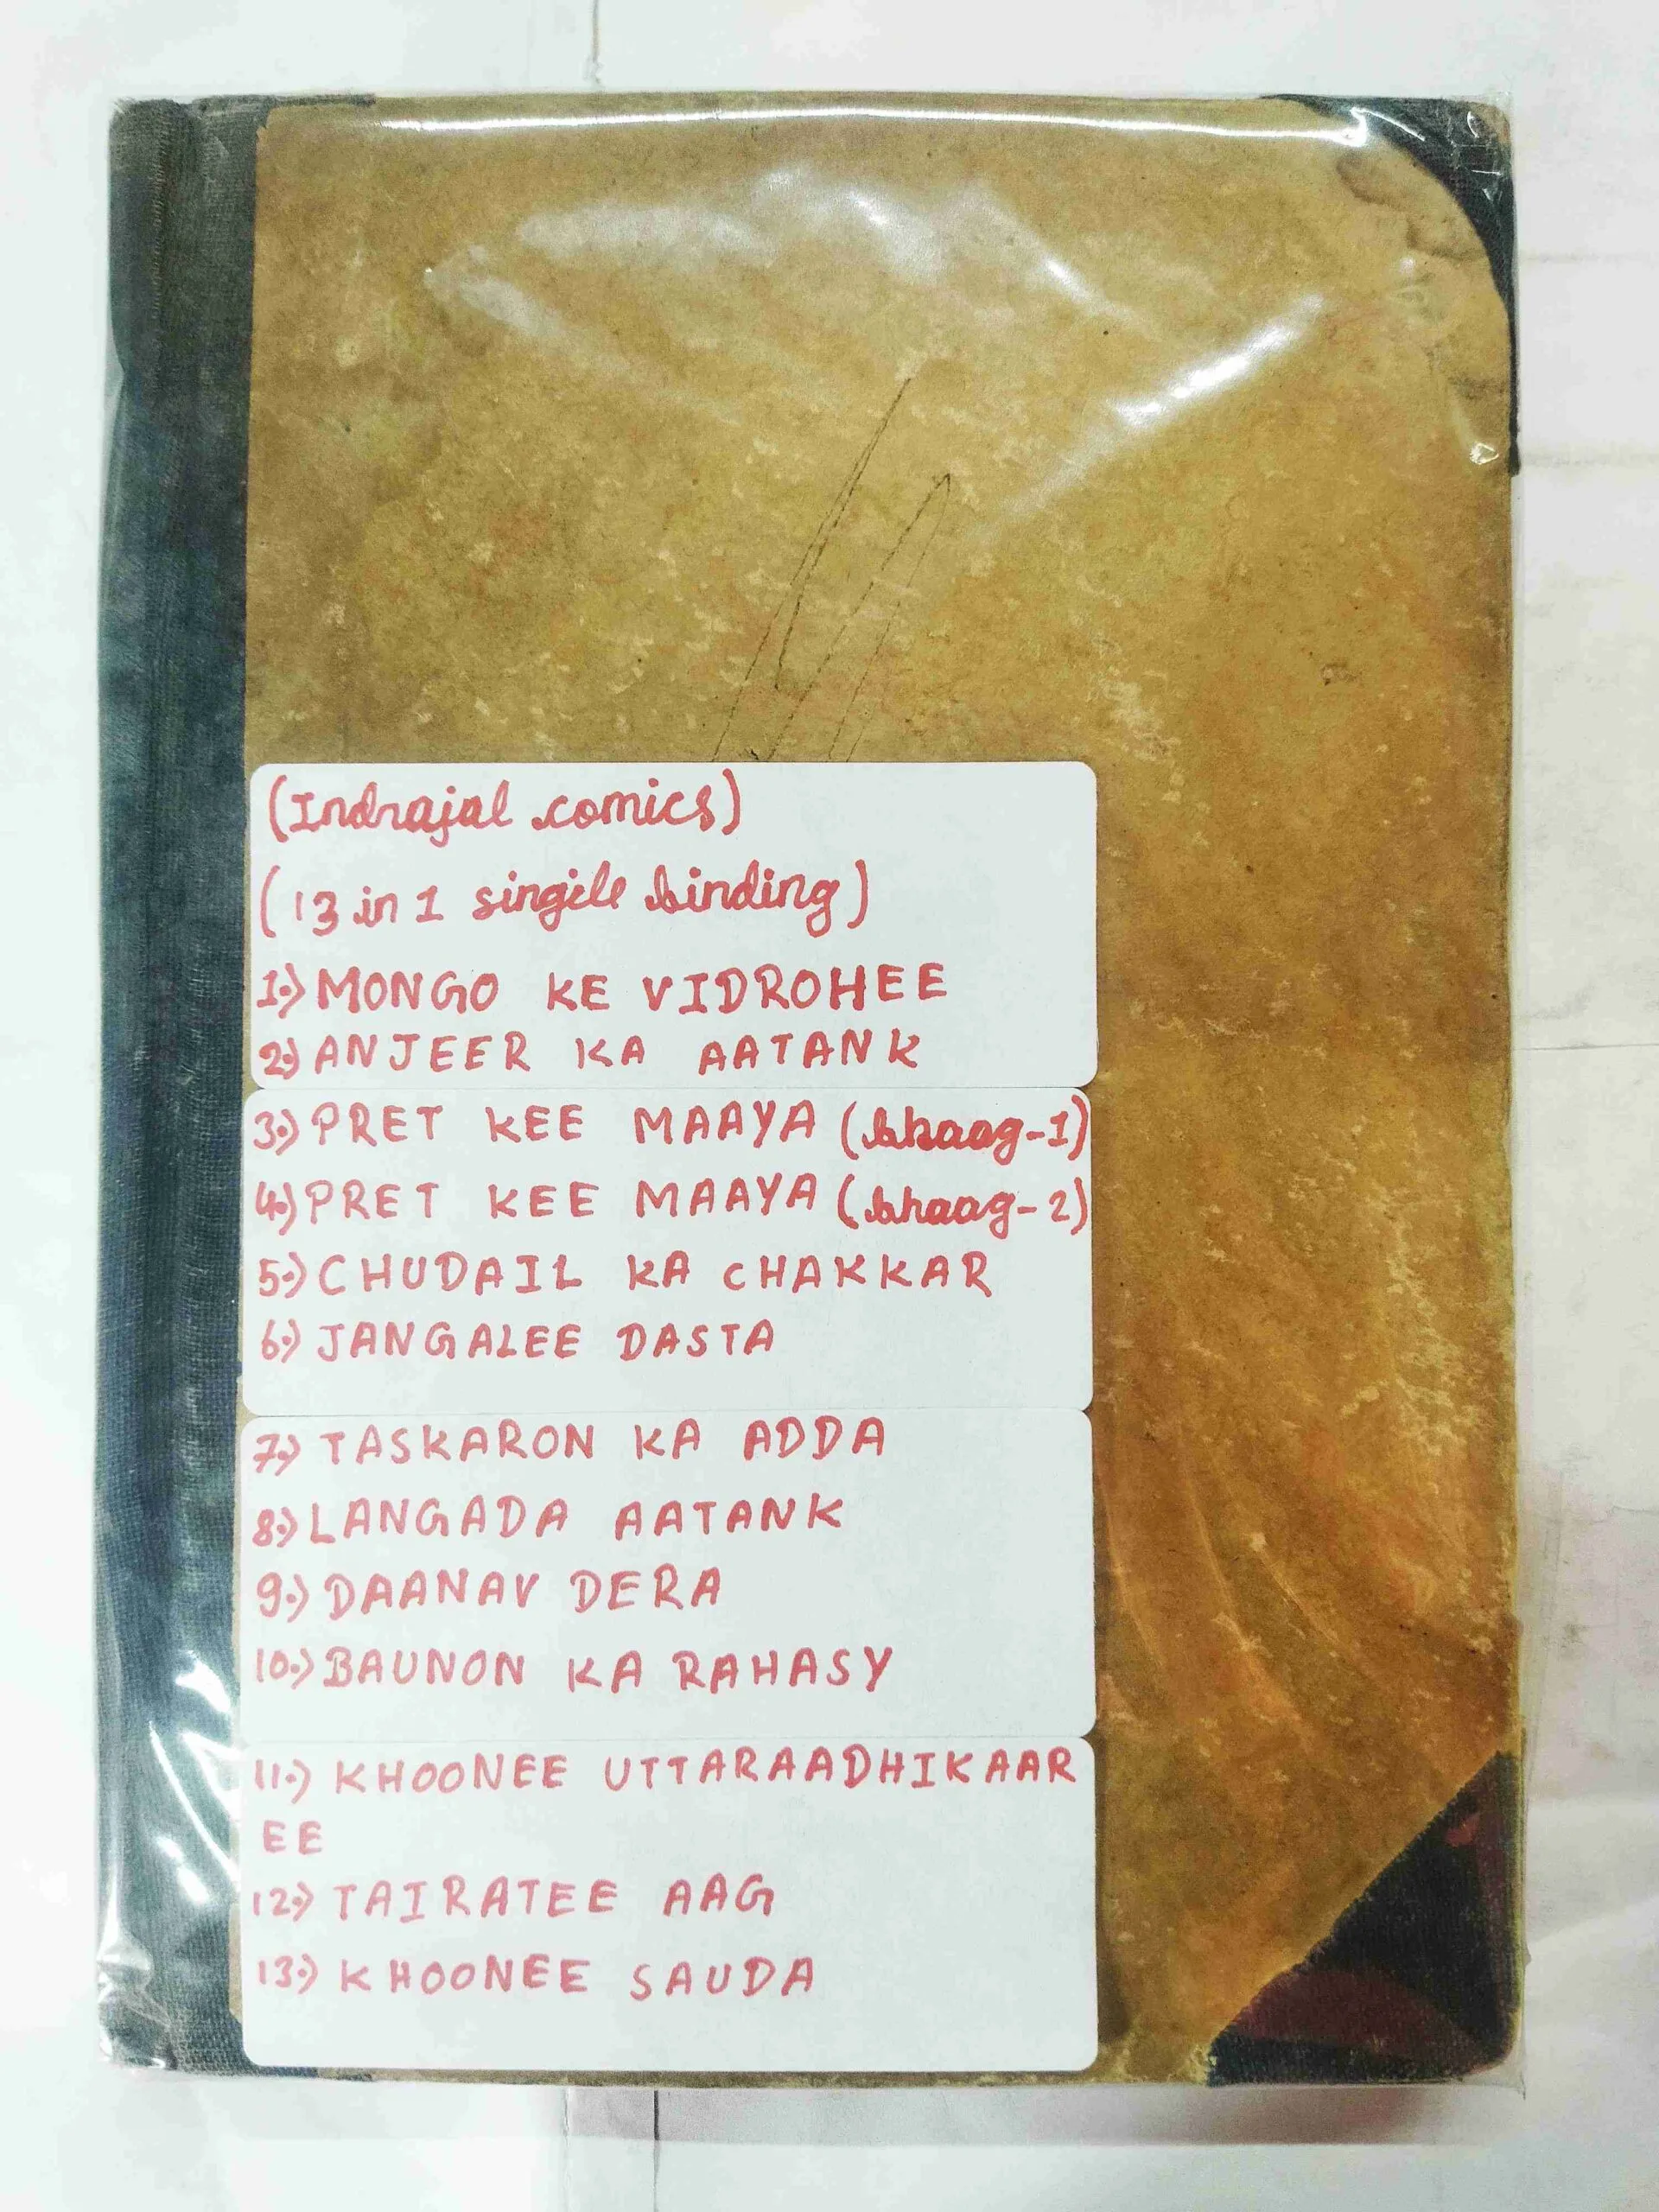 (Indrajal comics)
(13 in 1 singile binding)
1.) MONGO KE VIDROHEE
2.) ANJEER KA AATANK
3.) PRET KEE MAAYA (bhaag-1)
4.) PRET KEE MAAYA (bhaag-2)
5.) CHUDAIL KA CHAKKAR
6.) JANGALEE DASTA
7.) TASKARON KA ADDA
8.) LANGADA AATANK
9.) DAANAV DERA
10.) BAUNON KA RAHASY
11.) KHOONEE UTTARAADHIKAAR
EE
12.) TAIRATEE AAG
13.) KHOONEE SAUDA